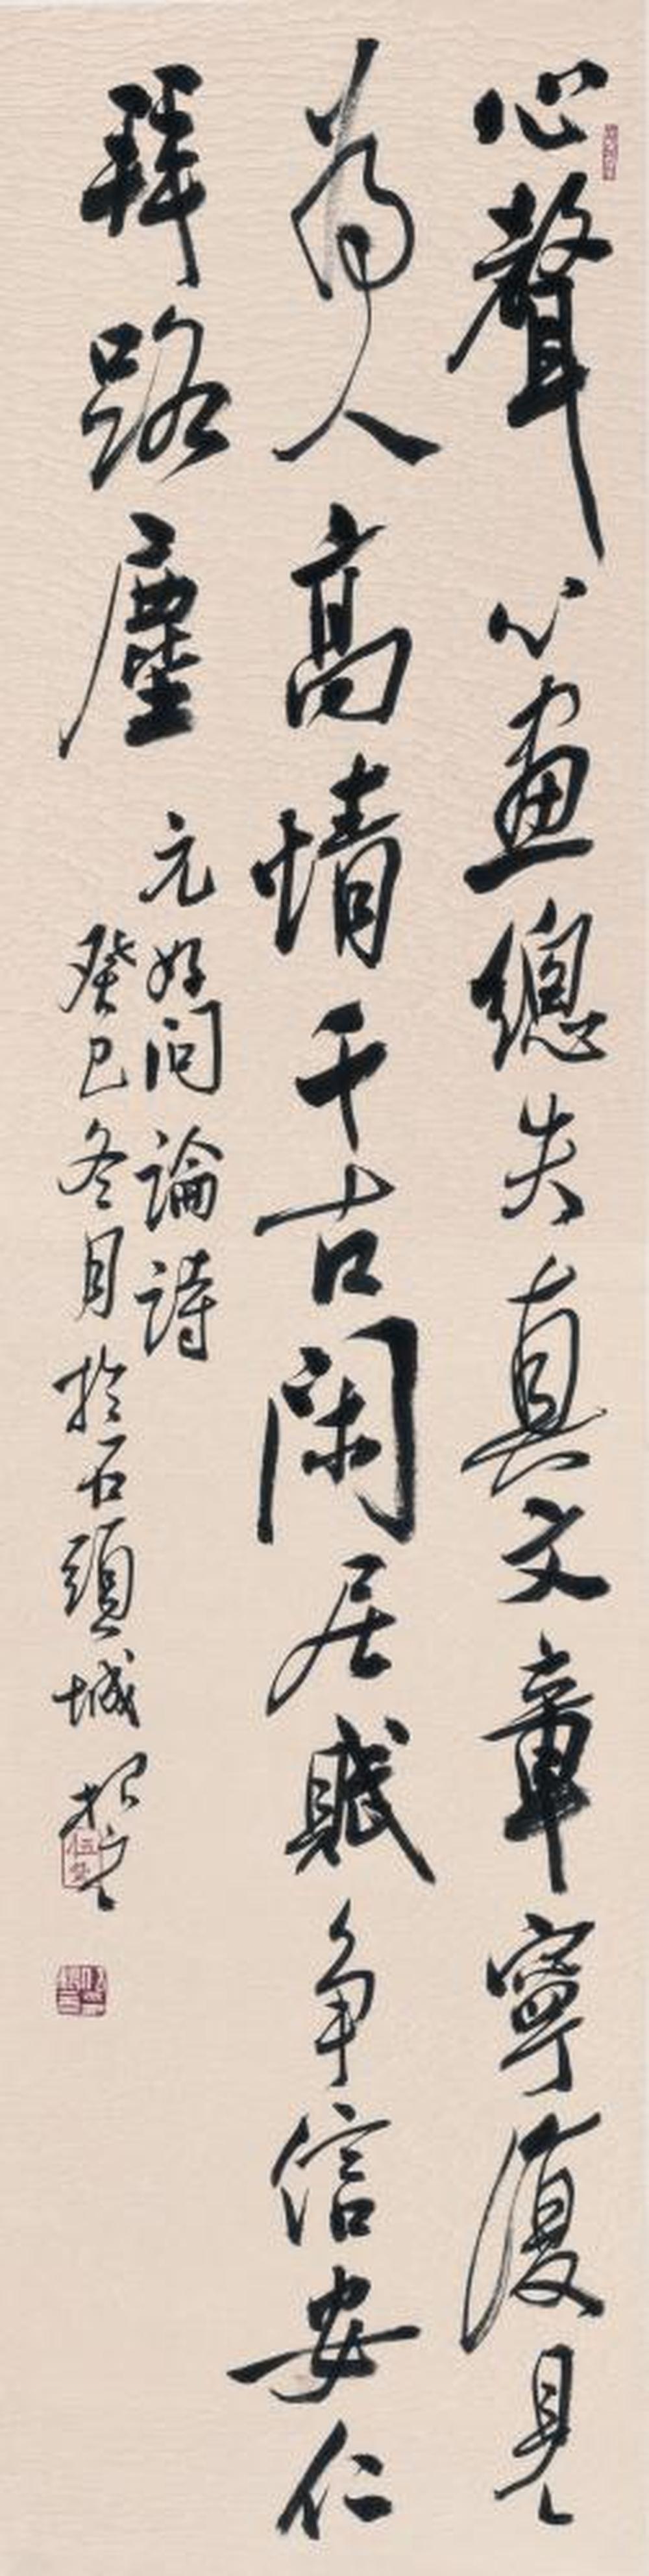 心聲心畫總失真文章寧復見
為人高情千古閑居賦争信安仁
拜路塵
元好问論詩
癸巳冬月於石頭城